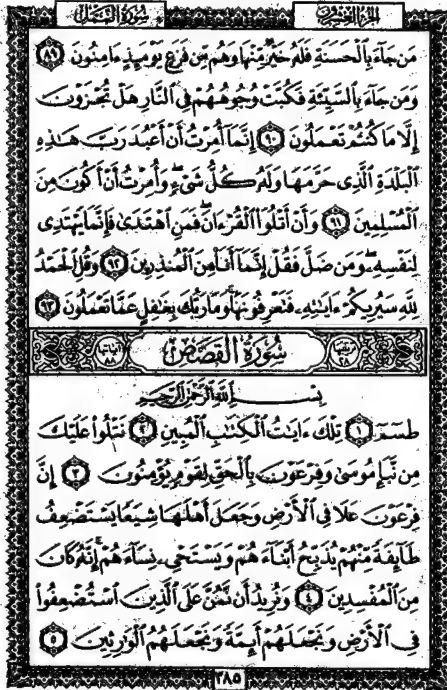 سُورَةُ النَّمْلِ الجُزْءُ العِشْرُونَ
مَن جَآءَ بِٱلْحَسَنَةِ فَلَهُۥ خَيْرٌ مِّنْهَا وَهُم مِّن فَزَعٍ يَوْمَئِذٍ ءَامِنُونَ ٨٩
وَمَن جَآءَ بِٱلسَّيِّئَةِ فَكُبَّتْ وُجُوهُهُمْ فِى ٱلنَّارِ هَلْ تُجْزَوْنَ
إِلَّا مَا كُنتُمْ تَعْمَلُونَ ٩٠ إِنَّمَآ أُمِرْتُ أَنْ أَعْبُدَ رَبَّ هَٰذِهِ
ٱلْبَلْدَةِ ٱلَّذِى حَرَّمَهَا وَلَهُۥ كُلُّ شَىْءٍ ۖ وَأُمِرْتُ أَنْ أَكُونَ مِنَ
ٱلْمُسْلِمِينَ ٩١ وَأَنْ أَتْلُوَا۟ ٱلْقُرْءَانَ ۖ فَمَنِ ٱهْتَدَىٰ فَإِنَّمَا يَهْتَدِى
لِنَفْسِهِۦ ۖ وَمَن ضَلَّ فَقُلْ إِنَّمَآ أَنَا۠ مِنَ ٱلْمُنذِرِينَ ٩٢ وَقُلِ ٱلْحَمْدُ
لِلَّهِ سَيُرِيكُمْ ءَايَٰتِهِۦ فَتَعْرِفُونَهَا ۚ وَمَا رَبُّكَ بِغَٰفِلٍ عَمَّا تَعْمَلُونَ ٩٣
ترتيبها ٢٨ سُورَةُ القَصَصِ آياتها ٨٨
بِسْمِ ٱللَّهِ ٱلرَّحْمَٰنِ ٱلرَّحِيمِ
طسٓمٓ ١ تِلْكَ ءَايَٰتُ ٱلْكِتَٰبِ ٱلْمُبِينِ ٢ نَتْلُوا۟ عَلَيْكَ
مِن نَّبَإِ مُوسَىٰ وَفِرْعَوْنَ بِٱلْحَقِّ لِقَوْمٍ يُؤْمِنُونَ ٣ إِنَّ
فِرْعَوْنَ عَلَا فِى ٱلْأَرْضِ وَجَعَلَ أَهْلَهَا شِيَعًا يَسْتَضْعِفُ
طَآئِفَةً مِّنْهُمْ يُذَبِّحُ أَبْنَآءَهُمْ وَيَسْتَحْىِۦ نِسَآءَهُمْ ۚ إِنَّهُۥ كَانَ
مِنَ ٱلْمُفْسِدِينَ ٤ وَنُرِيدُ أَن نَّمُنَّ عَلَى ٱلَّذِينَ ٱسْتُضْعِفُوا۟
فِى ٱلْأَرْضِ وَنَجْعَلَهُمْ أَئِمَّةً وَنَجْعَلَهُمُ ٱلْوَٰرِثِينَ ٥
٣٨٥